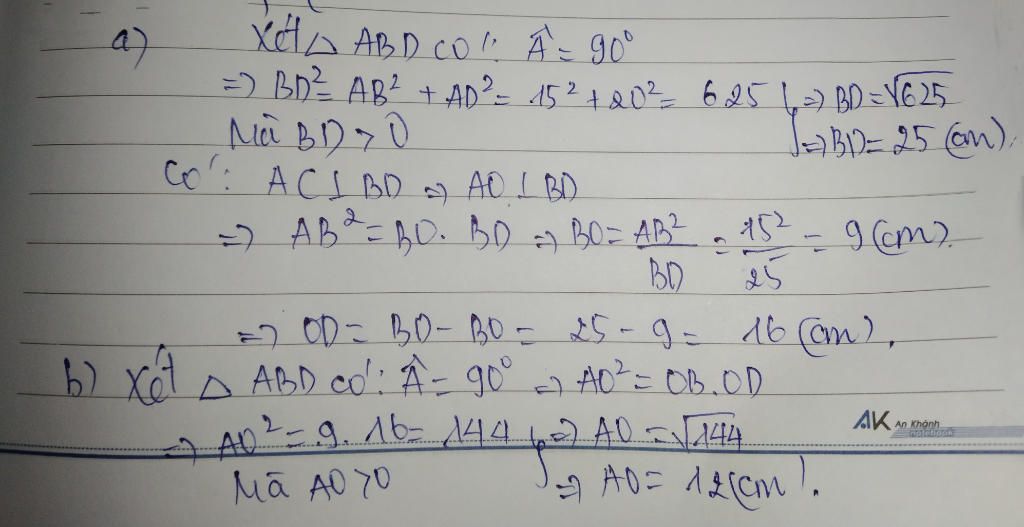 a) Xét △ ABD có: Â = 90°
=> BD² = AB² + AD² = 15² + 20² = 625 } => BD = √625
Mà BD > 0 } => BD = 25 (cm).
Có: AC ⊥ BD => AO ⊥ BD
=> AB² = BO. BD => BO = AB²/BD = 15²/25 = 9 (cm).
=> OD = BD - BO = 25 - 9 = 16 (cm).
b) Xét △ ABD có: Â = 90° => AO² = OB.OD
=> AO² = 9. 16 = 144 } => AO = √144
Mà AO > 0 } => AO = 12 (cm).
AK An Khánh
notebook